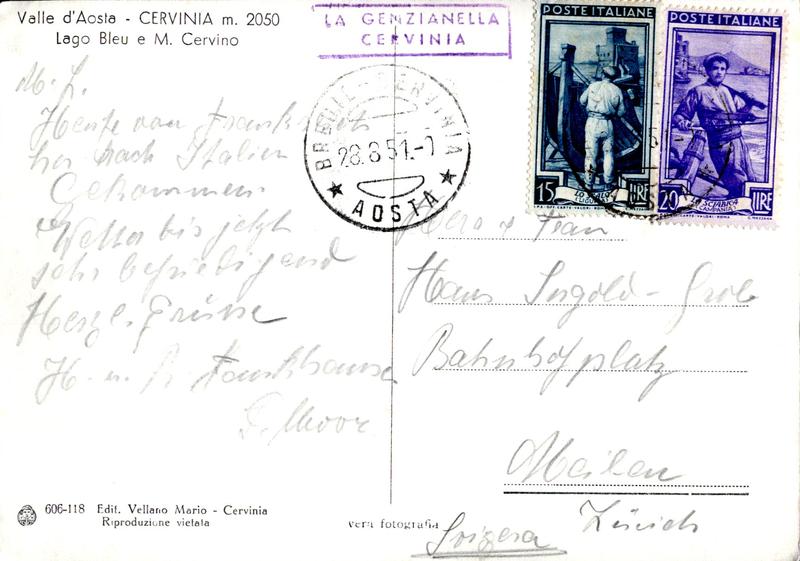 Valle d'Aosta - CERVINIA m. 2050
Lago Bleu e M. Cervino
LA GENZIANELLA
CERVINIA
BREUIL-CERVINIA
28.8.51.-7
AOSTA
POSTE ITALIANE
15 LIRE
POSTE ITALIANE
20 LIRE
CAMPANIA
M. L.
Heute von Frankreich
her nach Italien
Gekommen
Wetter bis jetzt
sehr befriedigend
Herzl. Grüsse
H. u. R. Fankhauser
Herr u Frau
Hans
Bahnhofplatz
Meilen
Zürich
Svizera
606-118 Edit. Vellano Mario - Cervinia
Riproduzione vietata
vera fotografia